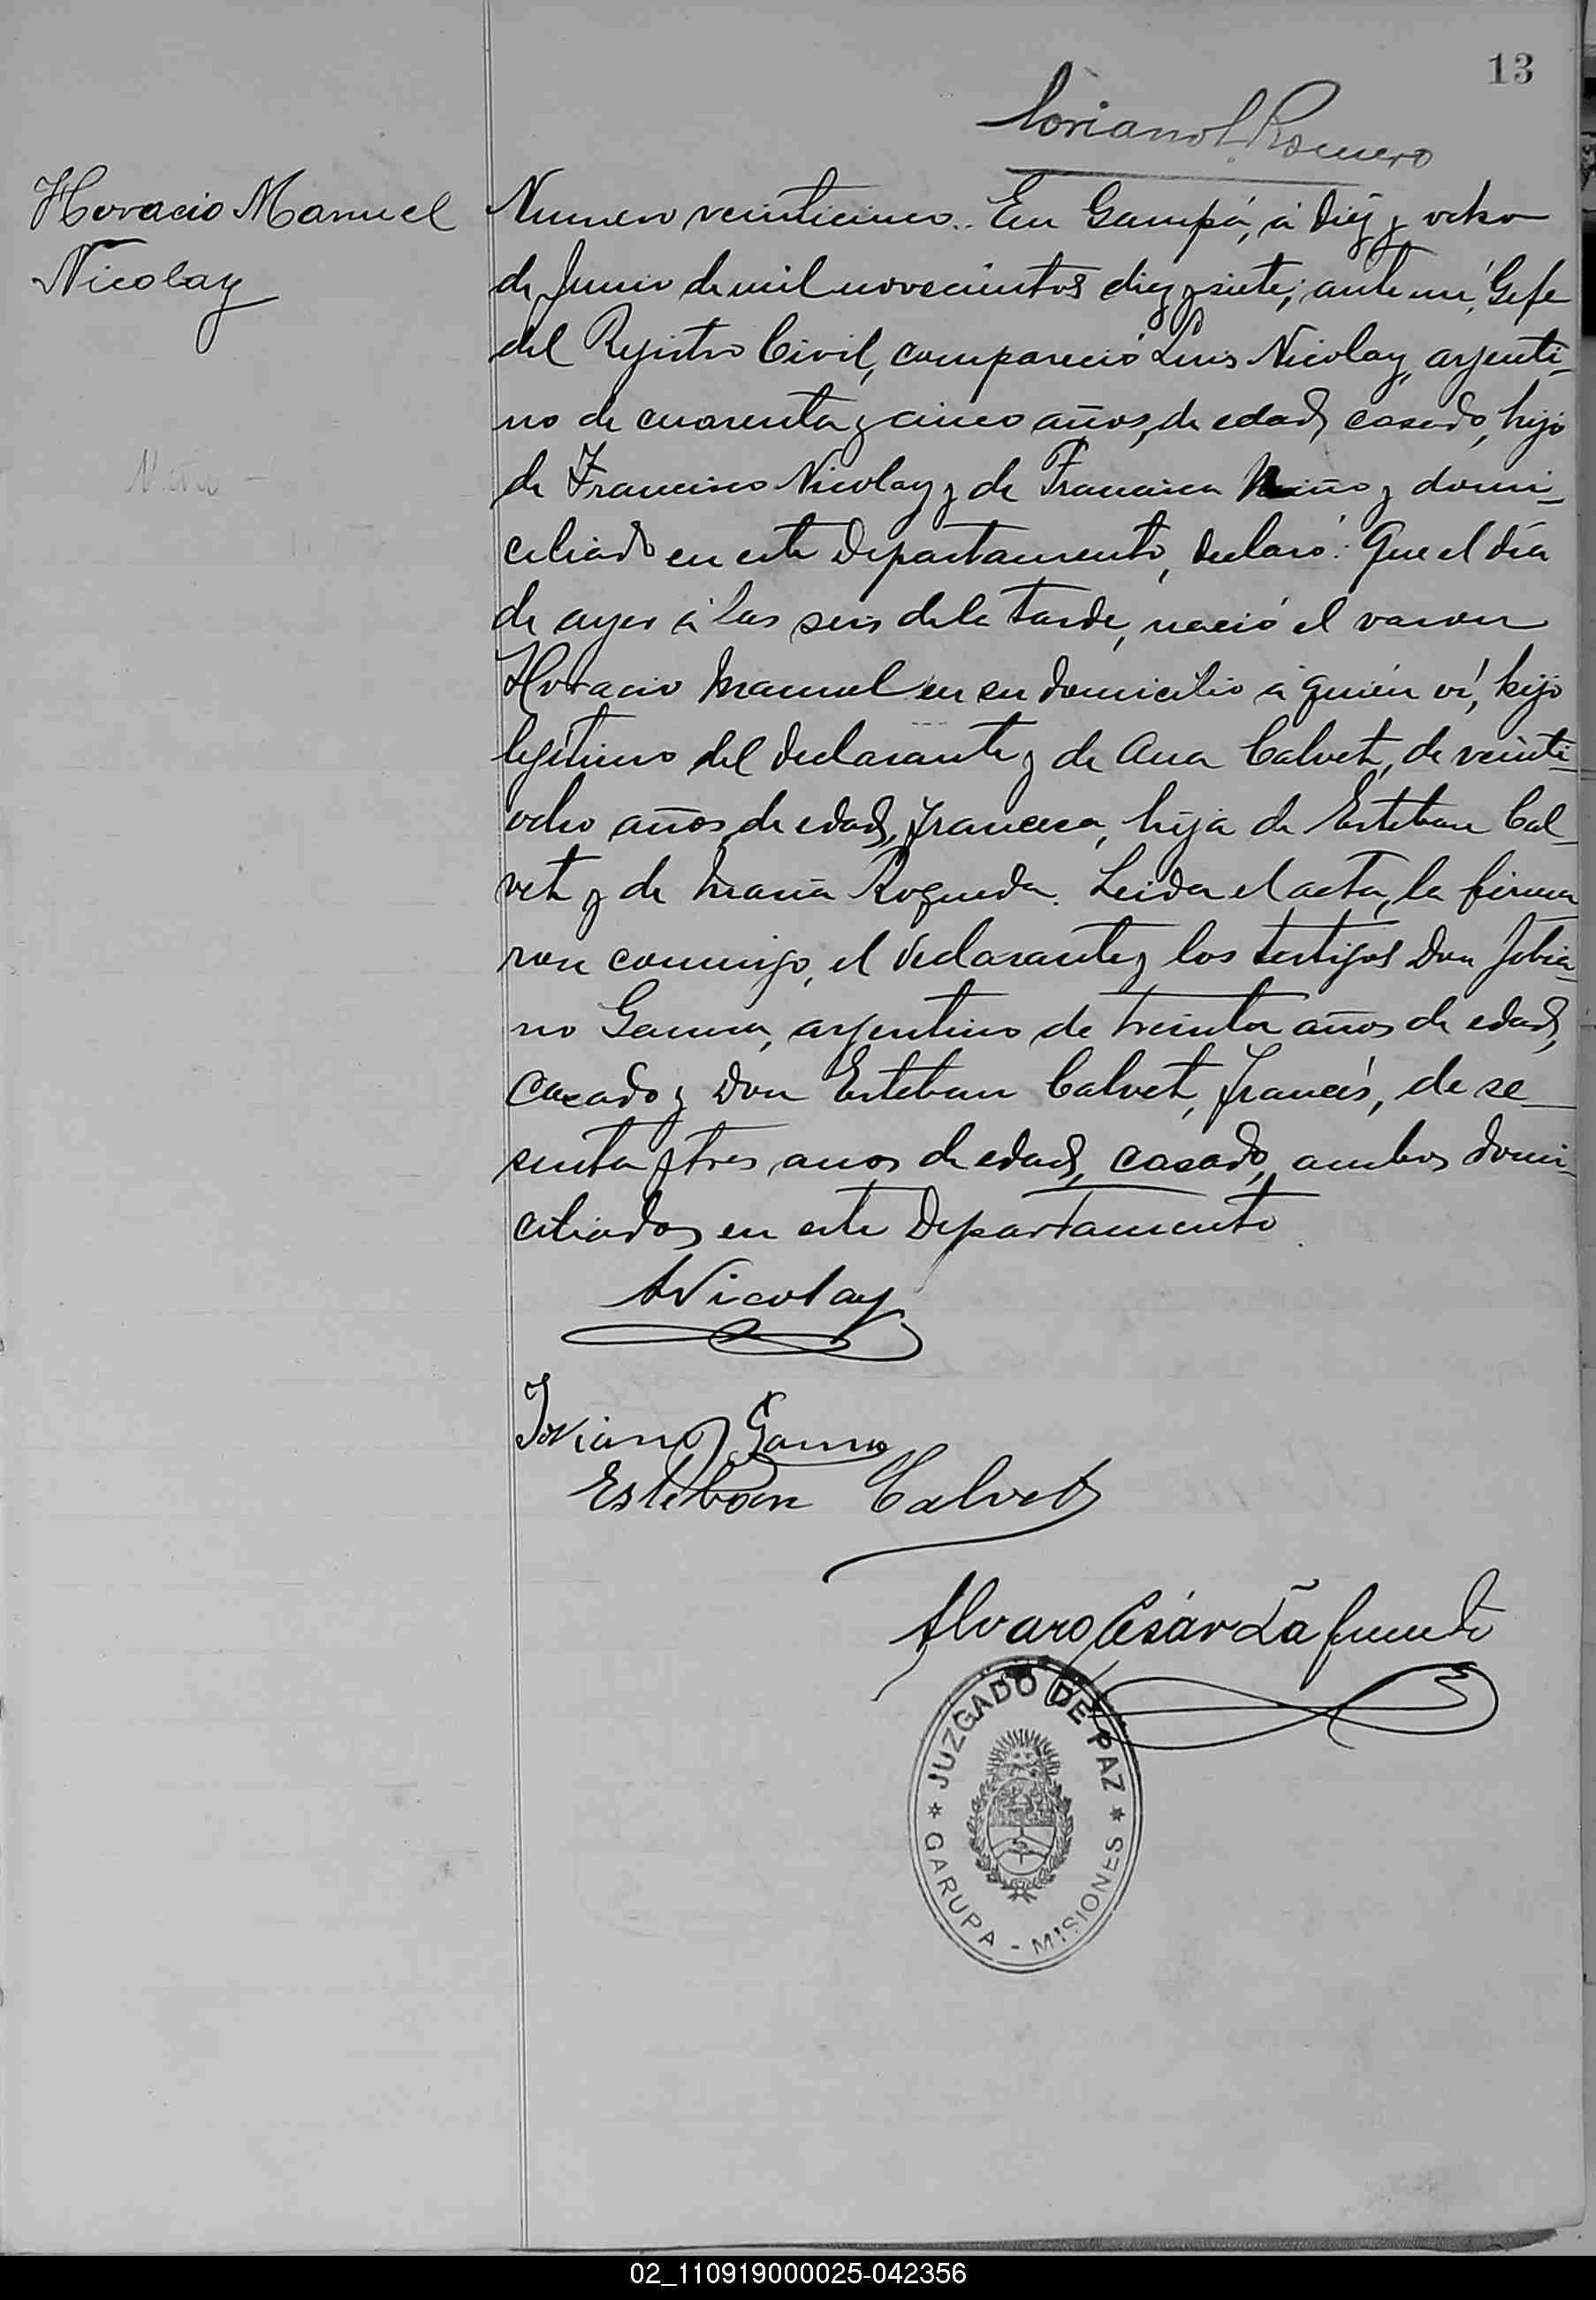 13
Soriano L. Romero
Horacio Manuel
Nicolay
Numero veinticinco.. En Garupá, á diez y ocho
de Junio de mil novecientos diez y siete; ante mí, Gefe
del Registro Civil, compareció Luis Nicolay, argenti-
no de cuarenta y cinco años, de edad, casado, hijo
de Francisco Nicolay y de Francisca Niño y domi-
ciliado en este Departamento, declaró: Que el día
de ayer á las seis de la tarde, nació el varon
Horacio Manuel en su domicilio á quién ví, hijo
legítimo del declarante y de Ana Calvet, de veinti-
ocho años, de edad, francesa, hija de Esteban Cal-
vet y de María Roqueda. Leida el acta, la firma
ron conmigo, el declarante y los testigos Don Jobia-
no Gauna, argentino de treinta años de edad,
casado y Don Esteban Calvet, francés, de se-
senta y tres anos de edad, casado, ambos domi-
ciliados en este Departamento.
Nicolay
Joviano Gauna
Esteban Calvet
Alvaro César Lafuente
JUZGADO DE PAZ
GARUPA - MISIONES
02_110919000025-042356